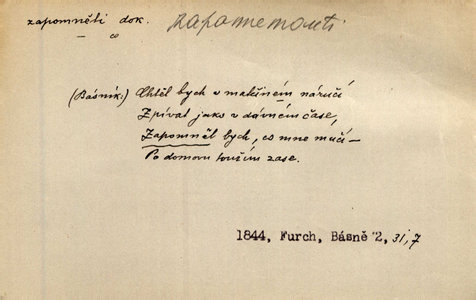 zapomněti dok. zapomenouti
co
(Básník:) Chtěl bych v matčiném náručí
Zpívat jako v dávném čase,
Zapomněl bych, co mne mučí—
Po domovu toužím zase.
1844, Furch, Básně 2, 31,7